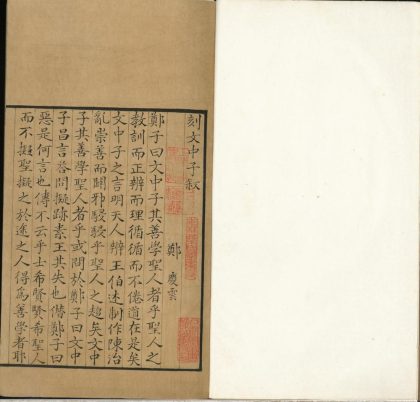 刻文中子敘
鄭慶雲
鄭子曰文中子其善學聖人者乎聖人之
教訓而正辨而理循循而不倦道在是矣
文中子之言明天人辨王伯述制作陳治
亂崇善而闢邪駸駸乎聖人之趨矣文中
子其善學聖人者乎或問於鄭子曰文中
子昌言答問擬跡素王其失也僭鄭子曰
惡是何言也傳不云乎士希賢賢希聖人
而不擬聖擬之於途之人得為善學者耶